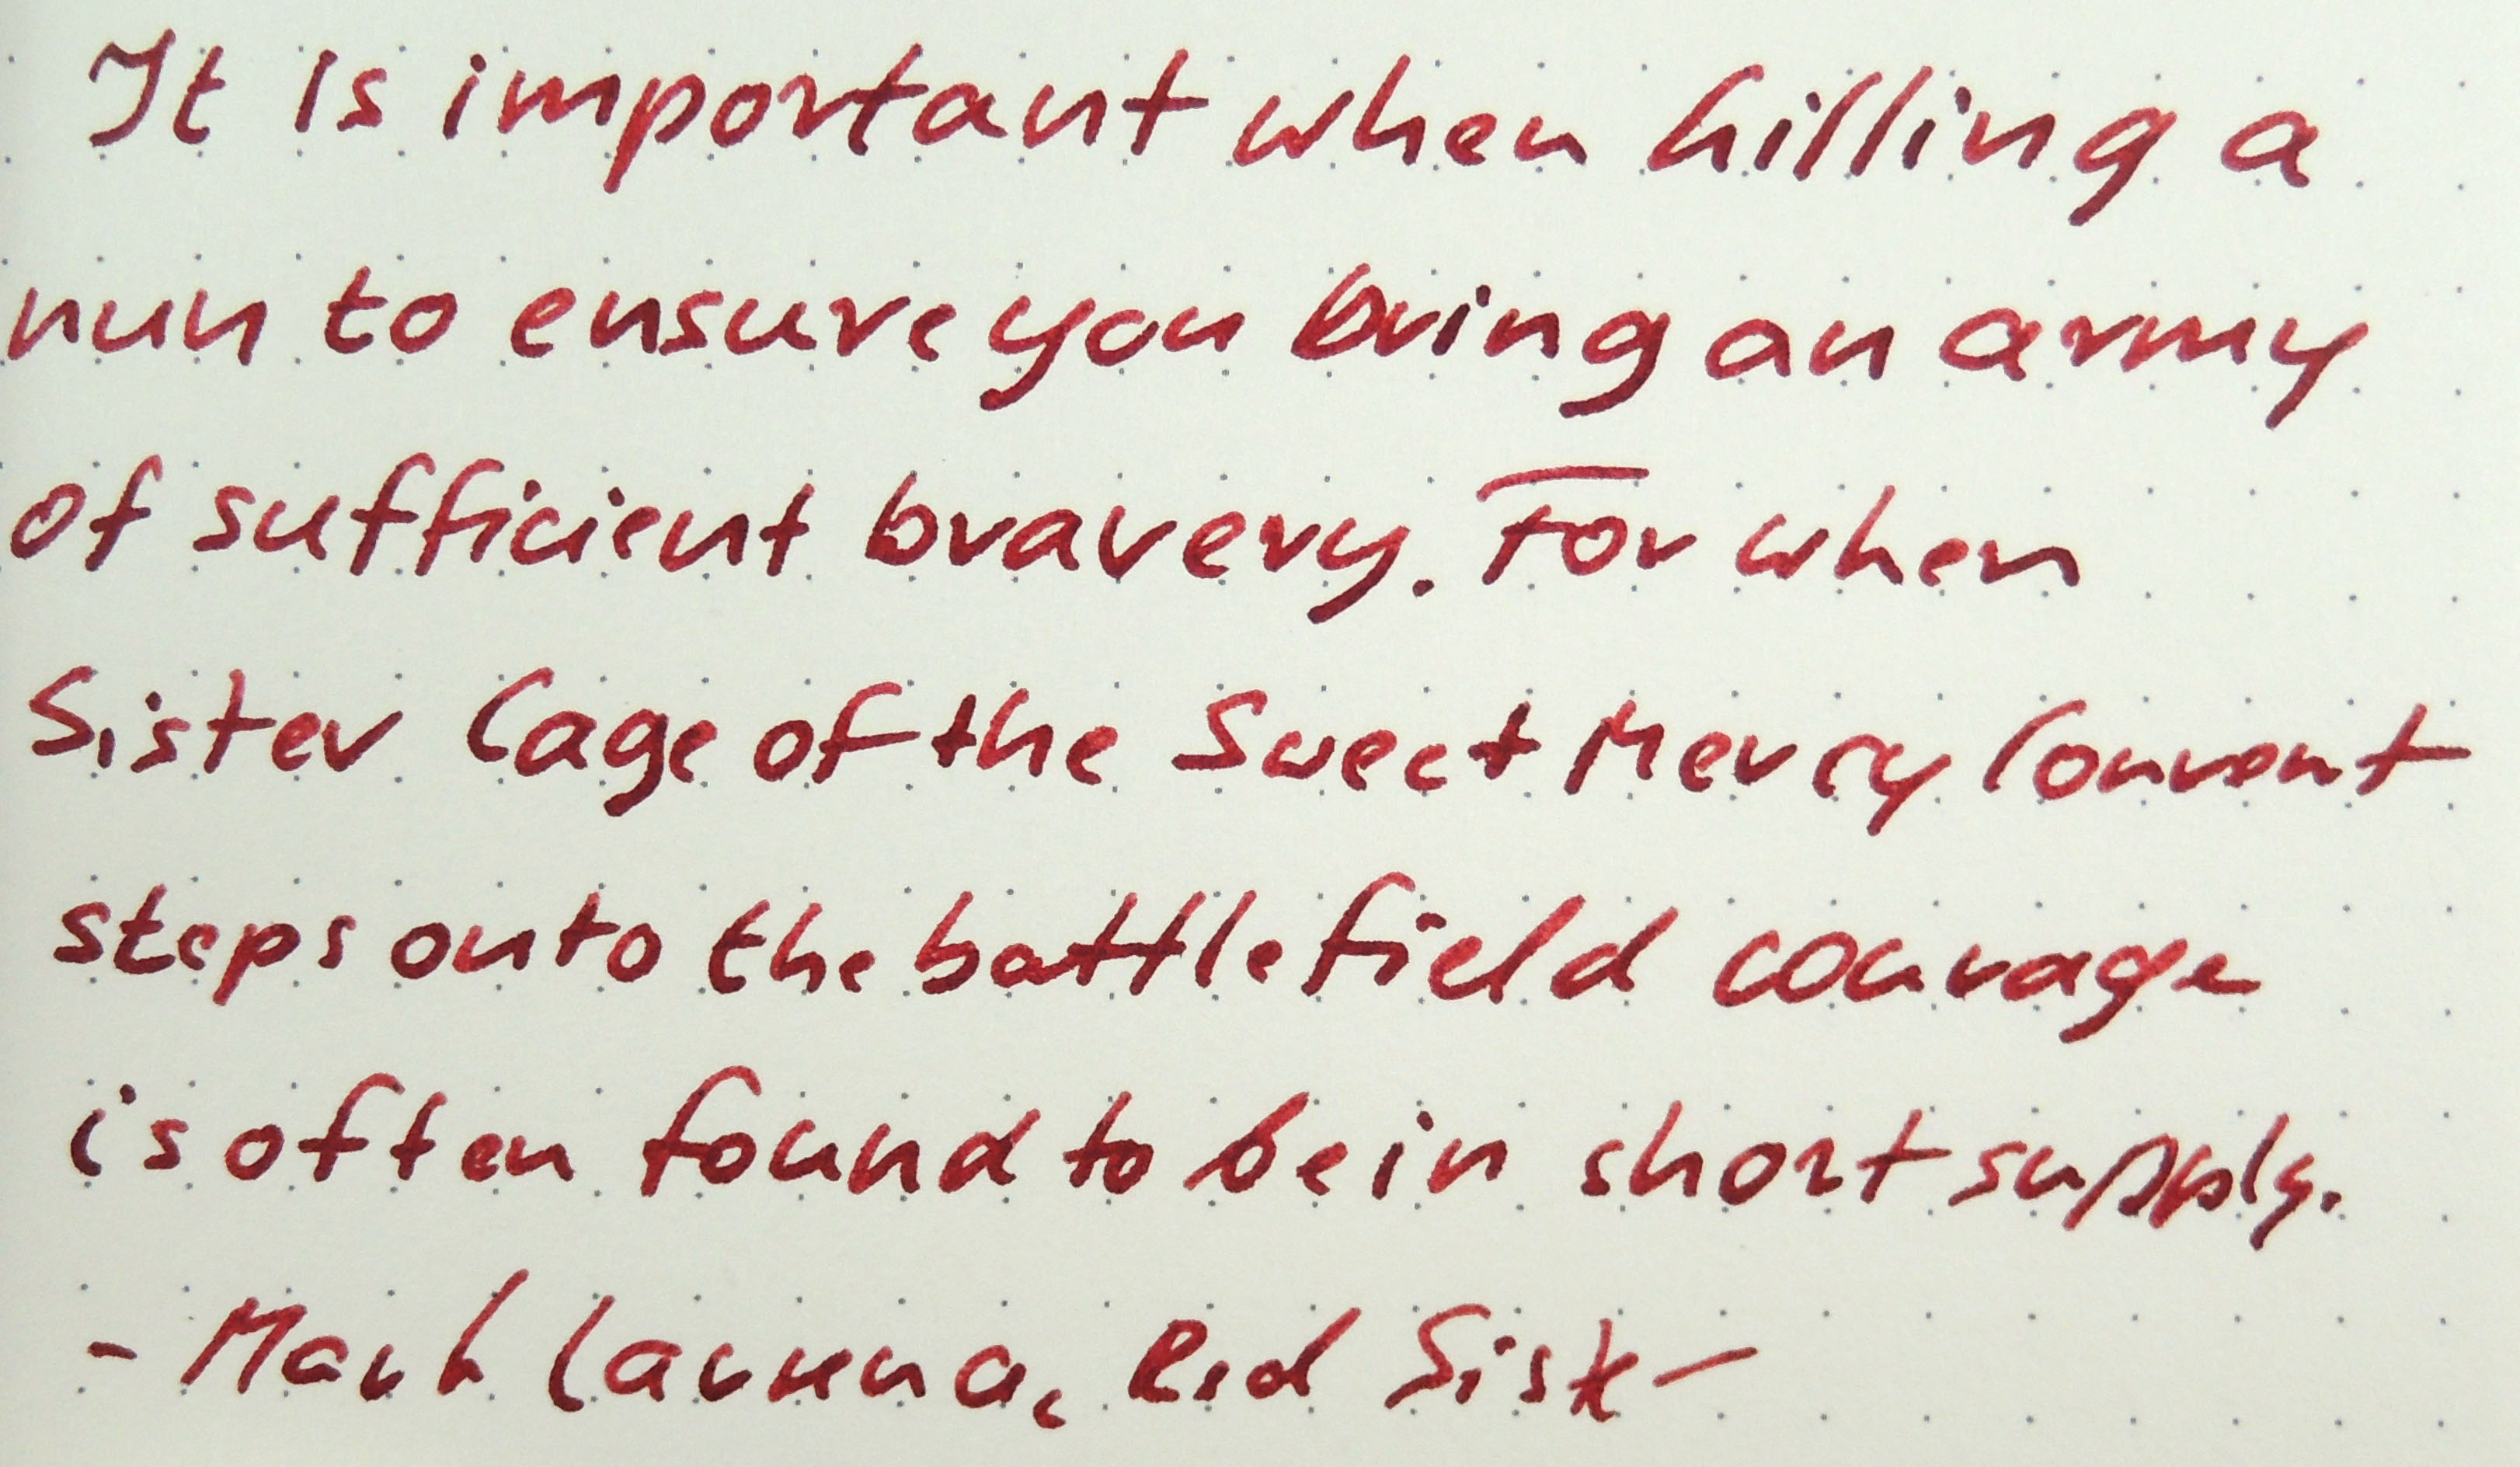 It is important when killing a
nun to ensure you bring an army
of sufficient bravery. For when
Sister Cage of the Sweet Mercy Convent
steps onto the battlefield courage
is often found to be in short supply.
- Mark Lawrence, Red Sister